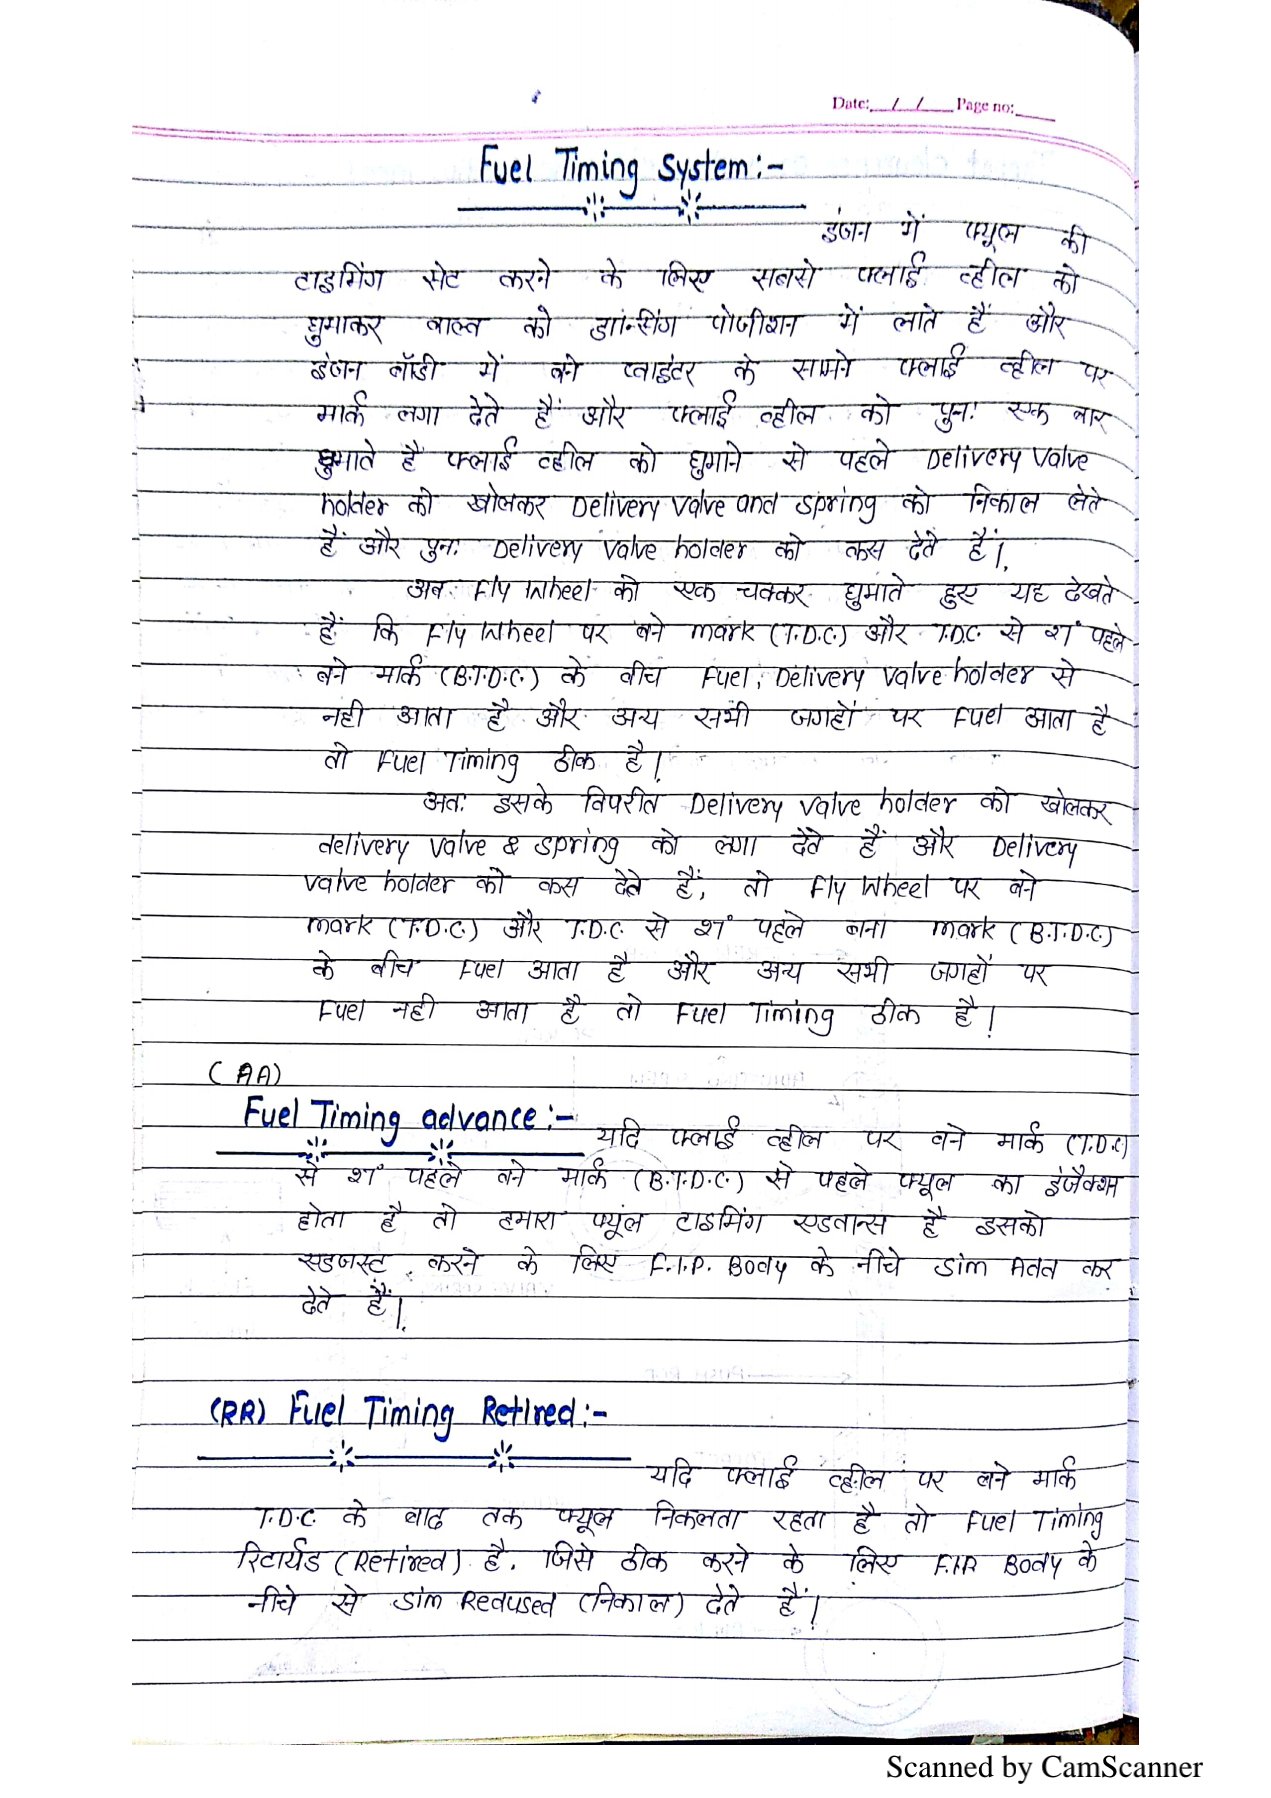 Date: / / Page no:
Fuel Timing System:-
इंजन में फ्यूल की
टाइमिंग सेट करने के लिए सबसे फ्लाई व्हील को
घुमाकर वाल्व को डान्सिंग पोजीशन में लाते हैं और
इंजन बॉडी में बने प्वाइंटर के सामने फ्लाई व्हील पर
मार्क लगा देते हैं और फ्लाई व्हील को पुनः एक बार
घुमाते हैं फ्लाई व्हील को घुमाने से पहले Delivery Valve
holder को खोलकर Delivery Valve and Spring को निकाल लेते
हैं और पुनः Delivery Valve holder को कस देते हैं।
अब Fly Wheel को एक चक्कर घुमाते हुए यह देखते
हैं कि Fly Wheel पर बने mark (T.D.C.) और T.D.C. से २1° पहले
बने मार्क (B.T.D.C.) के बीच Fuel, Delivery Valve holder से
नही आता है और अन्य सभी जगहों पर Fuel आता है
तो Fuel Timing ठीक है।
अतः इसके विपरीत Delivery Valve holder को खोलकर
delivery Valve & Spring को लगा देते हैं और Delivery
Valve holder को कस देते हैं, तो Fly Wheel पर बने
mark (T.D.C.) और T.D.C. से २1° पहले बना mark (B.T.D.C.)
के बीच Fuel आता है और अन्य सभी जगहों पर
Fuel नही आता है तो Fuel Timing ठीक है।
(AA)
Fuel Timing advance:-
यदि फ्लाई व्हील पर बने मार्क (T.D.C)
से २1° पहले बने मार्क (B.T.D.C.) से पहले फ्यूल का इंजेक्शन
होता है तो हमारा फ्यूल टाइमिंग एडवान्स है इसको
एडजस्ट करने के लिए F.I.P. Body के नीचे Sim कर
देते हैं।
(RR) Fuel Timing Retired:-
यदि फ्लाई व्हील पर बने मार्क
T.D.C. के बाद तक फ्यूल निकलता रहता है तो Fuel Timing
रिटार्यड (Retired) है. जिसे ठीक करने के लिए F.I.P. Body के
नीचे से Sim Redused (निकाल) देते हैं।
Scanned by CamScanner